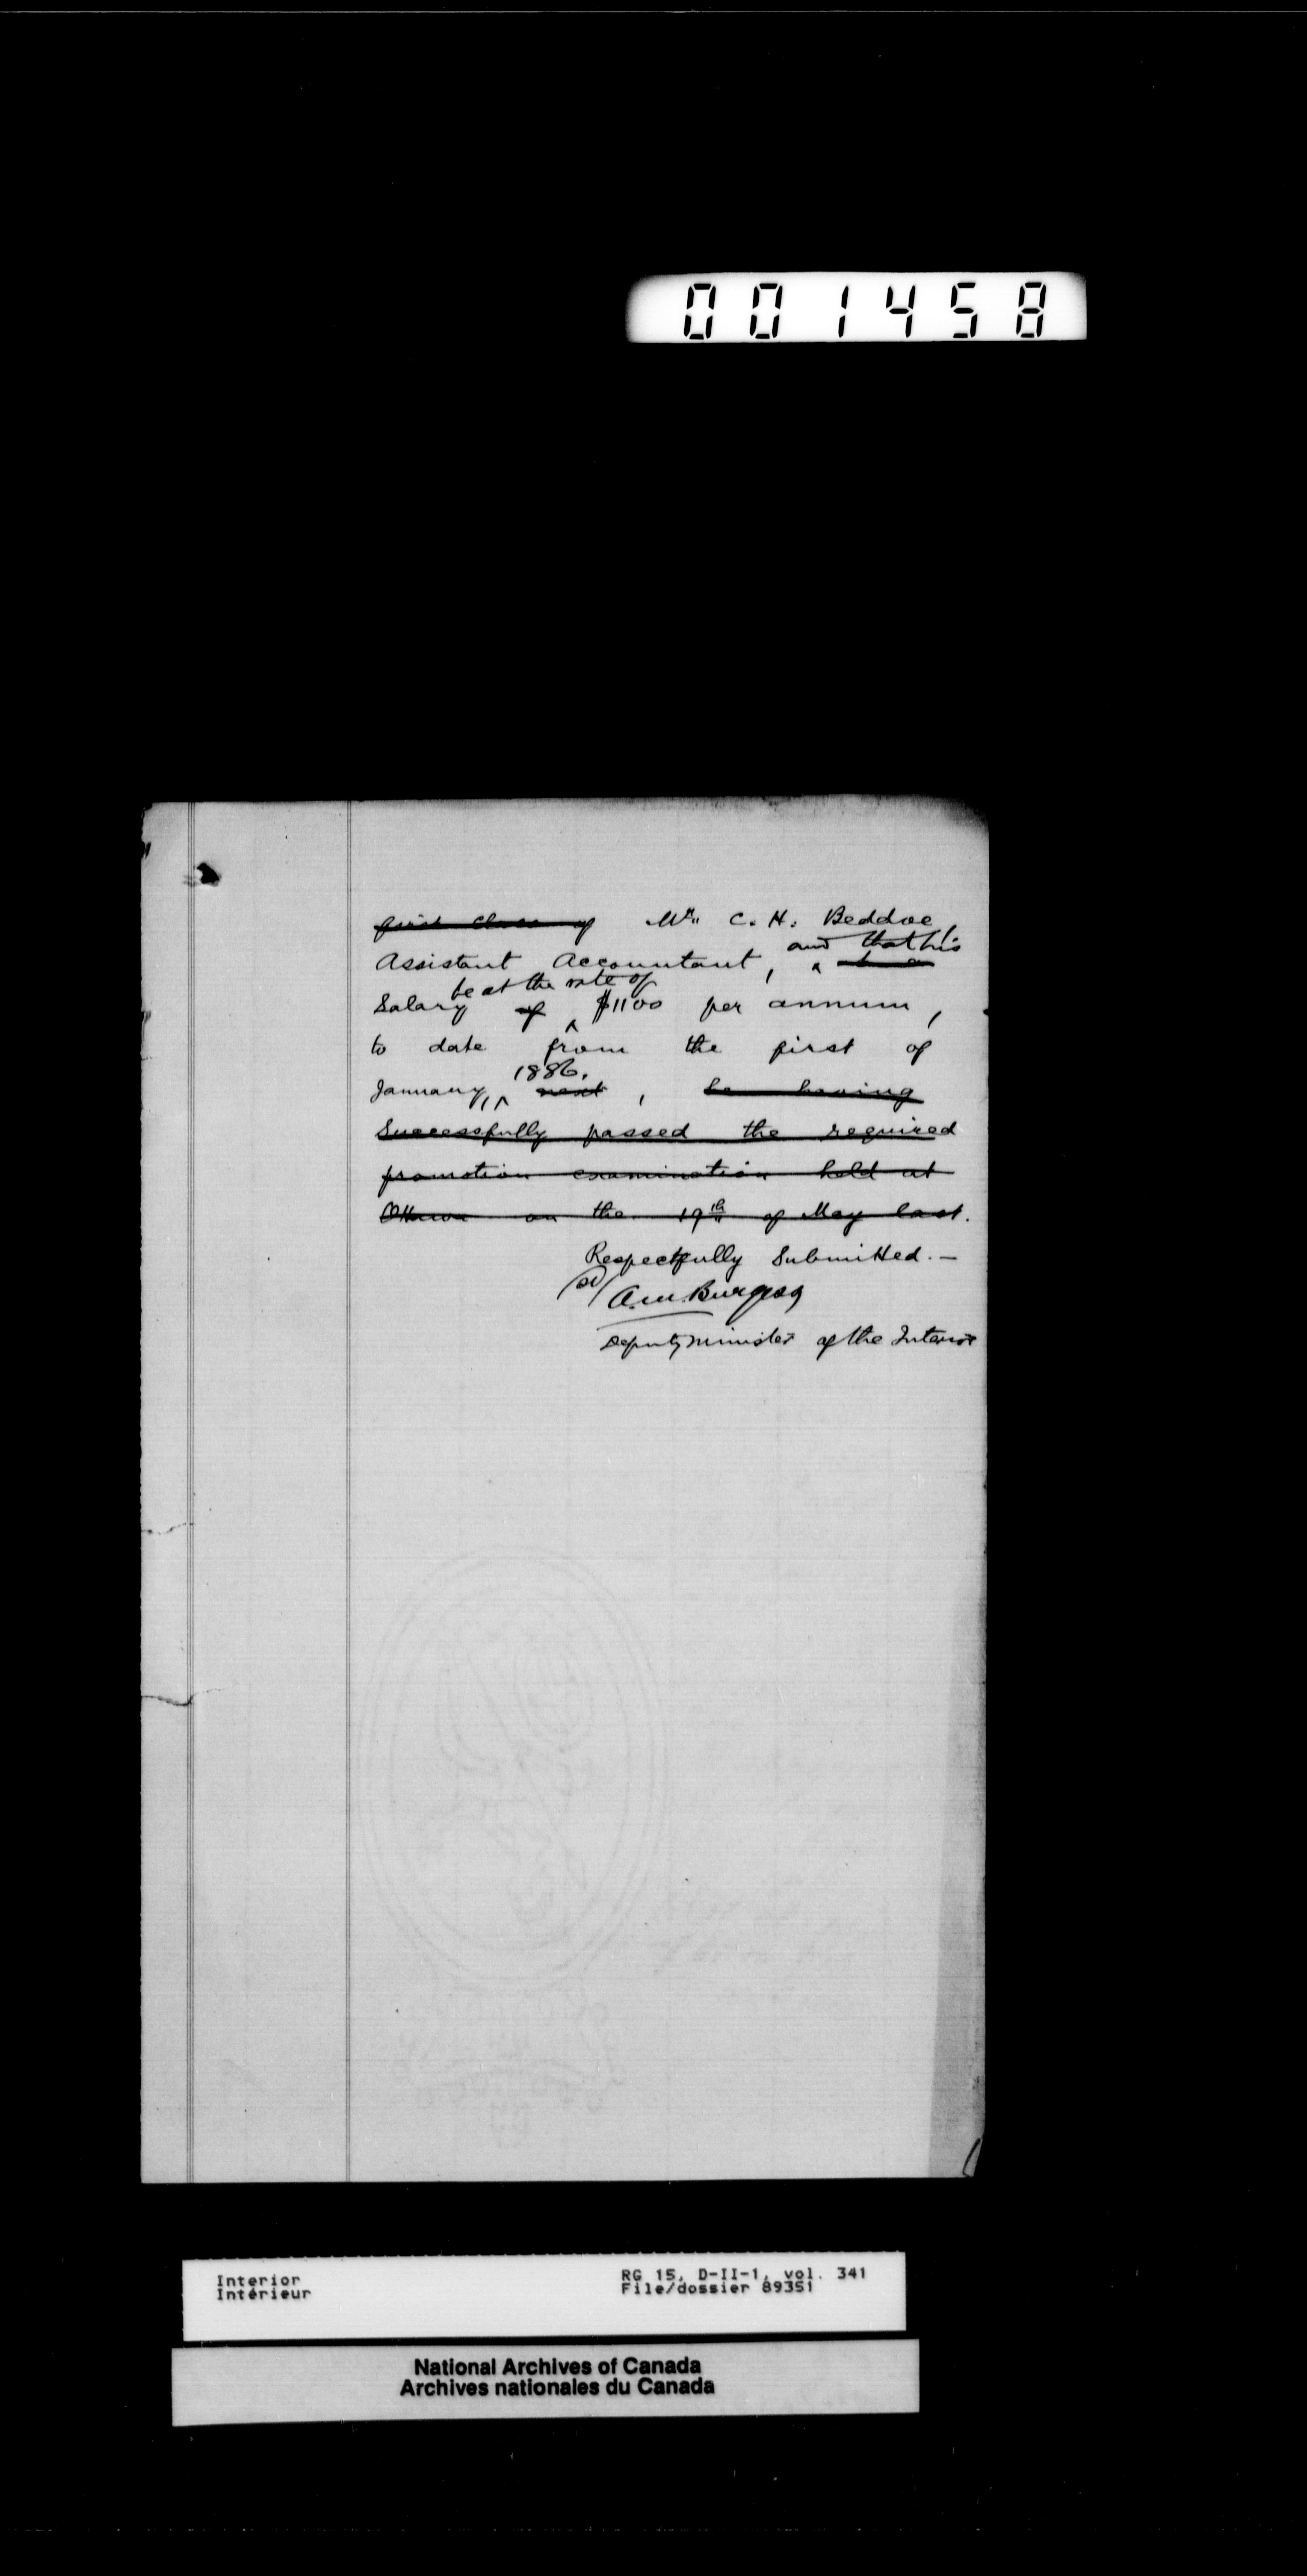 001458
first class of Mr. C. H. Beddoe,
and that his
Assistant Accountant, ^ to a
be at the rate of
Salary of ^ $1100 per annum,
to date from the first of
1886.
January, ^ next, he having
Successfully passed the required
promotion examination held at
Ottawa on the 19th of May last.
Respectfully Submitted. —
(sd) A.M. Burgess
Deputy Minister of the Interior
Interior RG 15, D-II-1, vol. 341
Intérieur File/dossier 89351
National Archives of Canada
Archives nationales du Canada